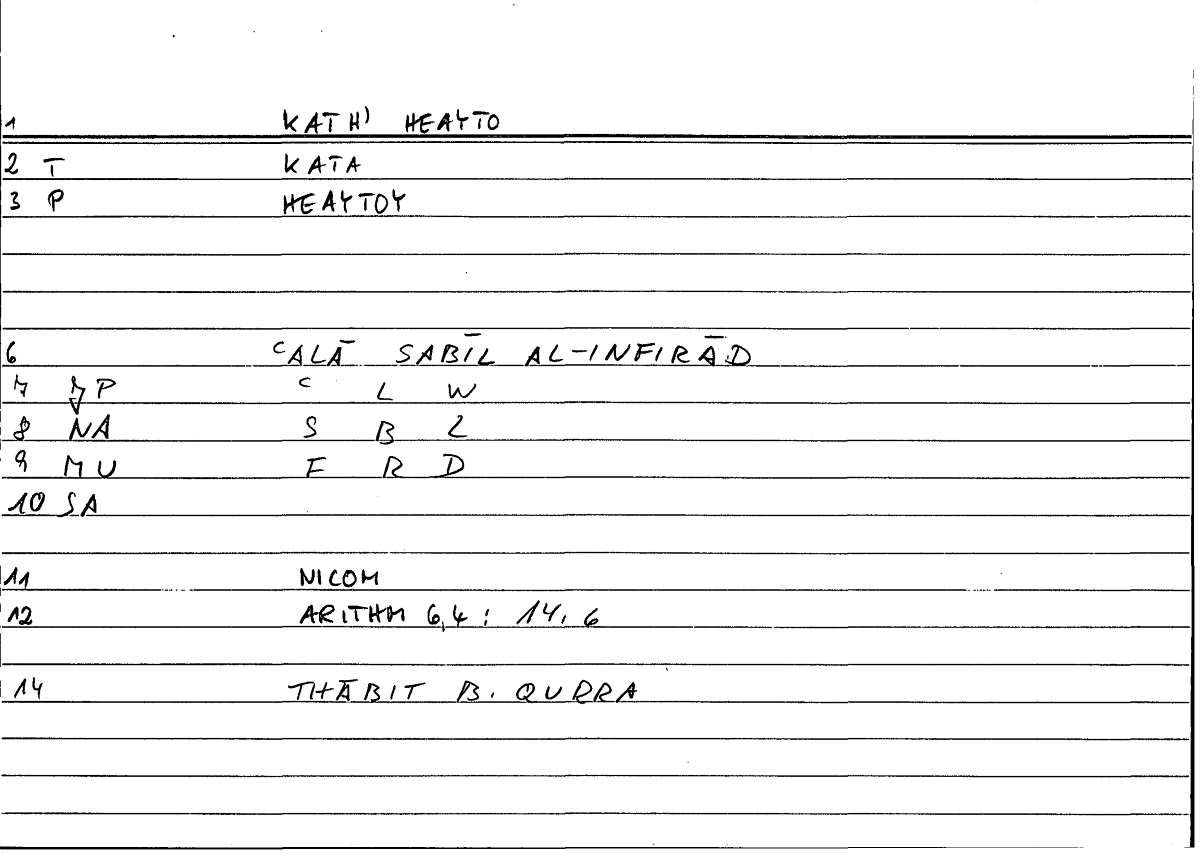 1 KATH) HEAYTO
2 T KATA
3 P HEAYTOY
6 ʿALĀ SABĪL AL-INFIRĀD
7 ʿ L W
8 NA S B L
9 MU F R D
10 SA
11 NICOM
12 ARITHM 6,4 : 14,6
14 THĀBIT B. QURRA